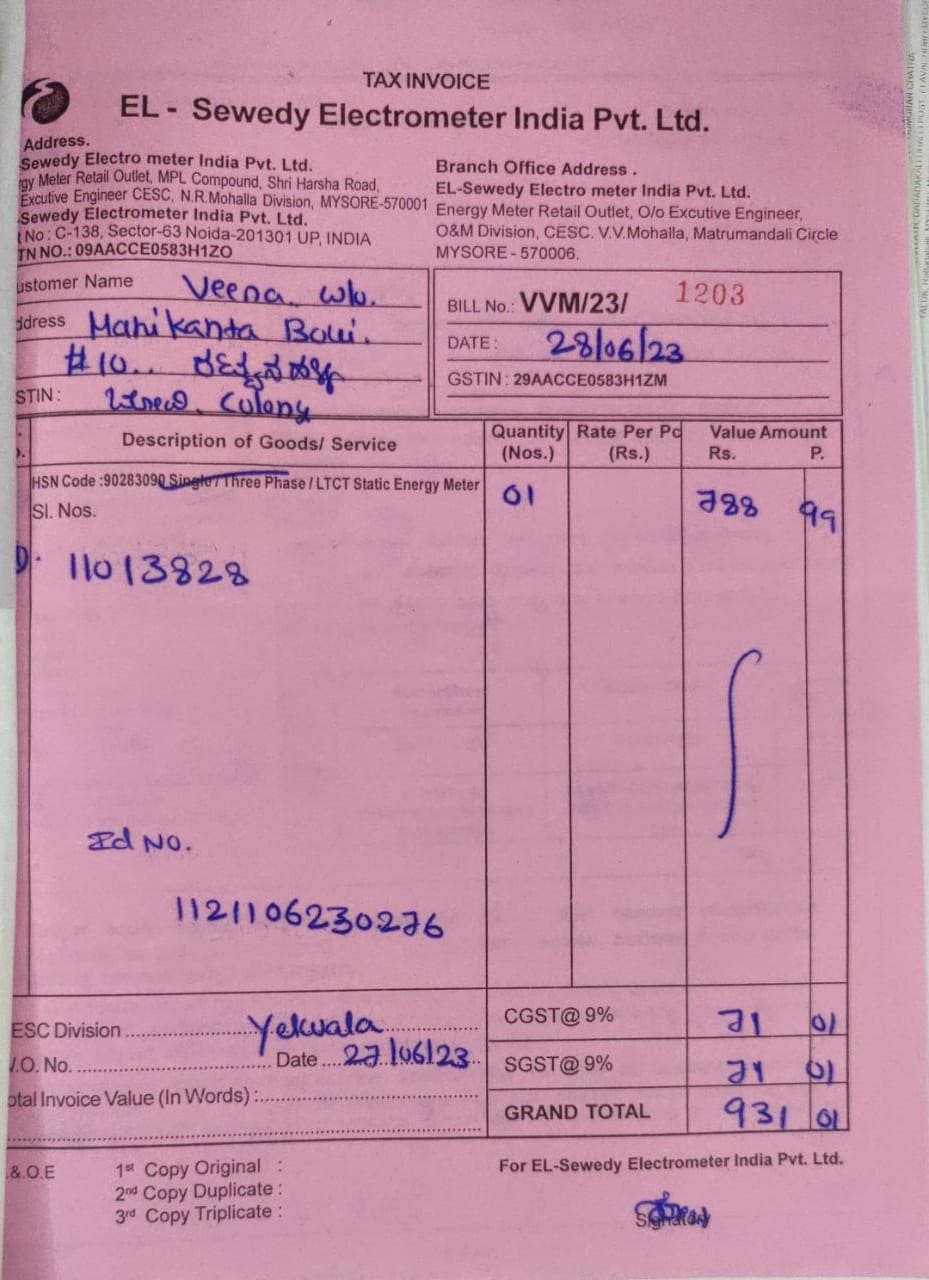 TAX INVOICE
EL - Sewedy Electrometer India Pvt. Ltd.
Address.
Sewedy Electro meter India Pvt. Ltd.
gy Meter Retail Outlet, MPL Compound, Shri Harsha Road,
Excutive Engineer CESC, N.R.Mohalla Division, MYSORE-570001
Sewedy Electrometer India Pvt. Ltd.
No : C-138, Sector-63 Noida-201301 UP, INDIA
TN NO.: 09AACCE0583H1ZO
Branch Office Address .
EL-Sewedy Electro meter India Pvt. Ltd.
Energy Meter Retail Outlet, O/o Excutive Engineer,
O&M Division, CESC. V.V.Mohalla, Matrumandali Circle
MYSORE - 570006.
ustomer Name Veena w/o.
ddress Manikanta
#10..
STIN : Colony
BILL No.: VVM/23/ 1203
DATE : 28/06/23
GSTIN : 29AACCE0583H1ZM
Description of Goods/ Service Quantity (Nos.) Rate Per Pc (Rs.) Value Amount Rs. P.
HSN Code :90283090 Single / Three Phase / LTCT Static Energy Meter 01 788 99
Sl. Nos.
11013828
Id No.
1121106230276
ESC Division Yelwala
.O. No. Date 27/06/23
otal Invoice Value (In Words) :
CGST@ 9% 71 01
SGST@ 9% 71 01
GRAND TOTAL 931 01
.&.O.E
1st Copy Original :
2nd Copy Duplicate :
3rd Copy Triplicate :
For EL-Sewedy Electrometer India Pvt. Ltd.
Signatory